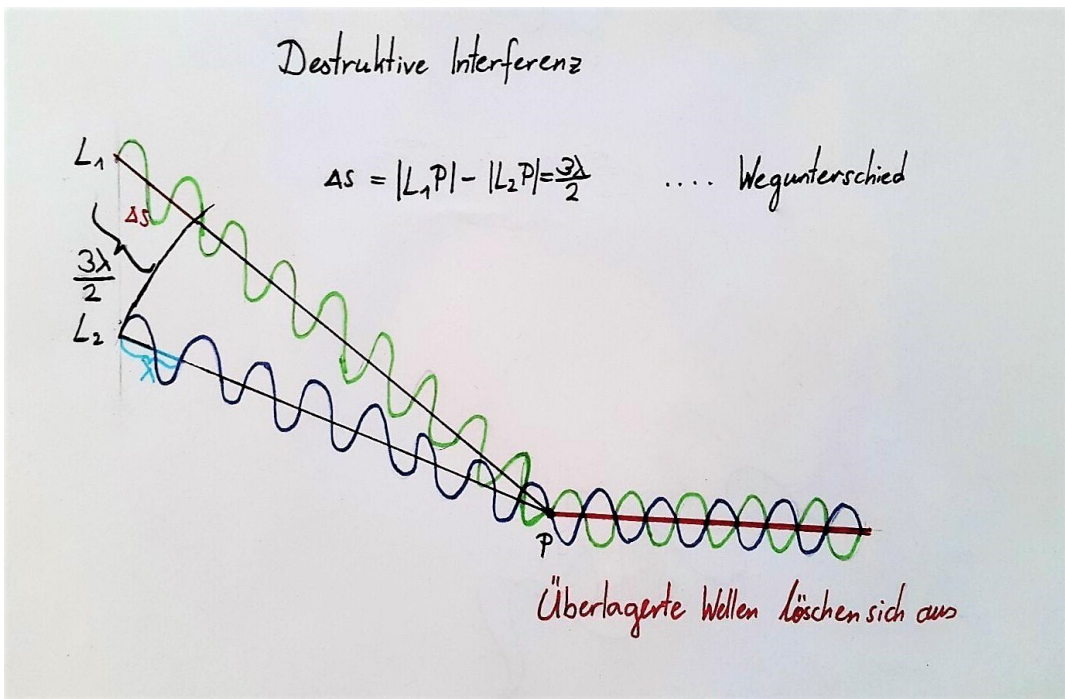 Destruktive Interferenz
L₁
Δs = |L₁P| - |L₂P| = 3λ/2 .... Wegunterschied
Δs
3λ/2
L₂
λ
P
Überlagerte Wellen löschen sich aus